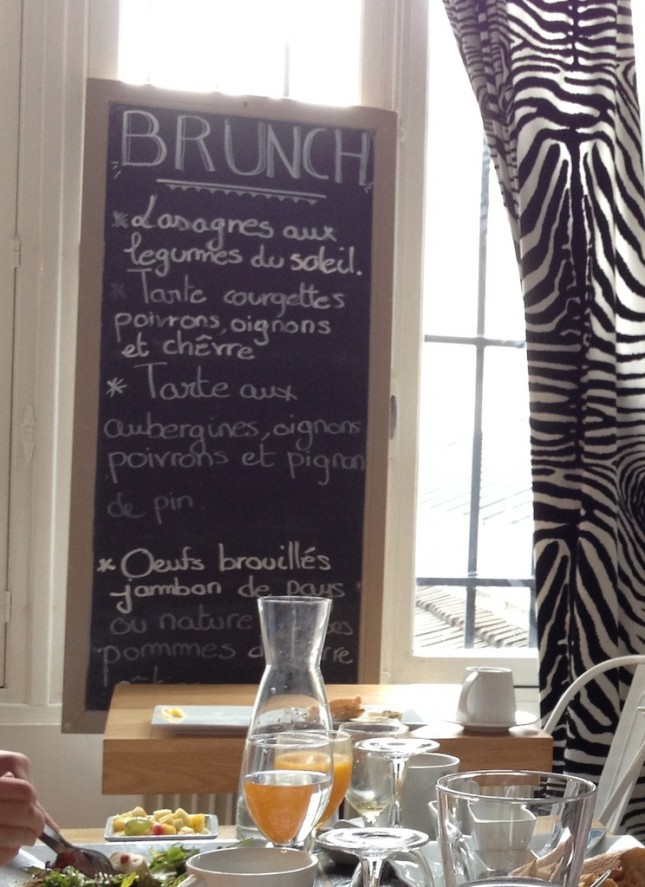 BRUNCH
* Lasagnes aux
legumes du soleil.
* Tarte courgettes
poivrons, oignons
et chêvre
* Tarte aux
aubergines, oignons
poivrons et pignon
de pin
* Oeufs brouillés
jambon de pays
ou nature
pommes